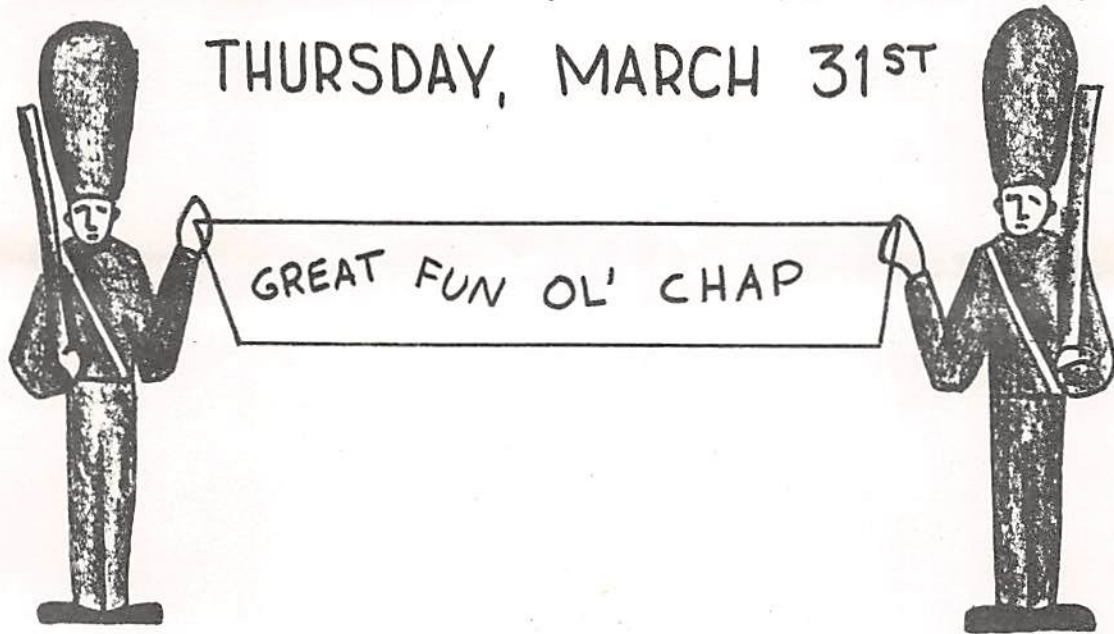 THURSDAY, MARCH 31ST
GREAT FUN OL' CHAP